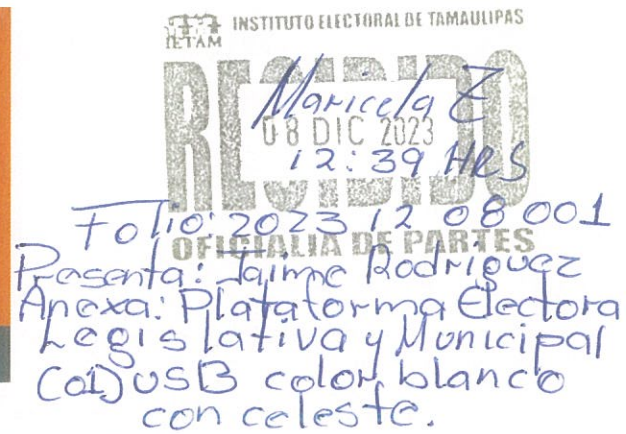 INSTITUTO ELECTORAL DE TAMAULIPAS
IETAM
RECIBIDO
Maricela Z
08 DIC 2023
12:39 HRS
Folio: 2023 12 08 001
OFICIALIA DE PARTES
Presenta: Jaime Rodriguez
Anexa: Plataforma Electora
Legislativa y Municipal
(01) USB color blanco
con celeste.